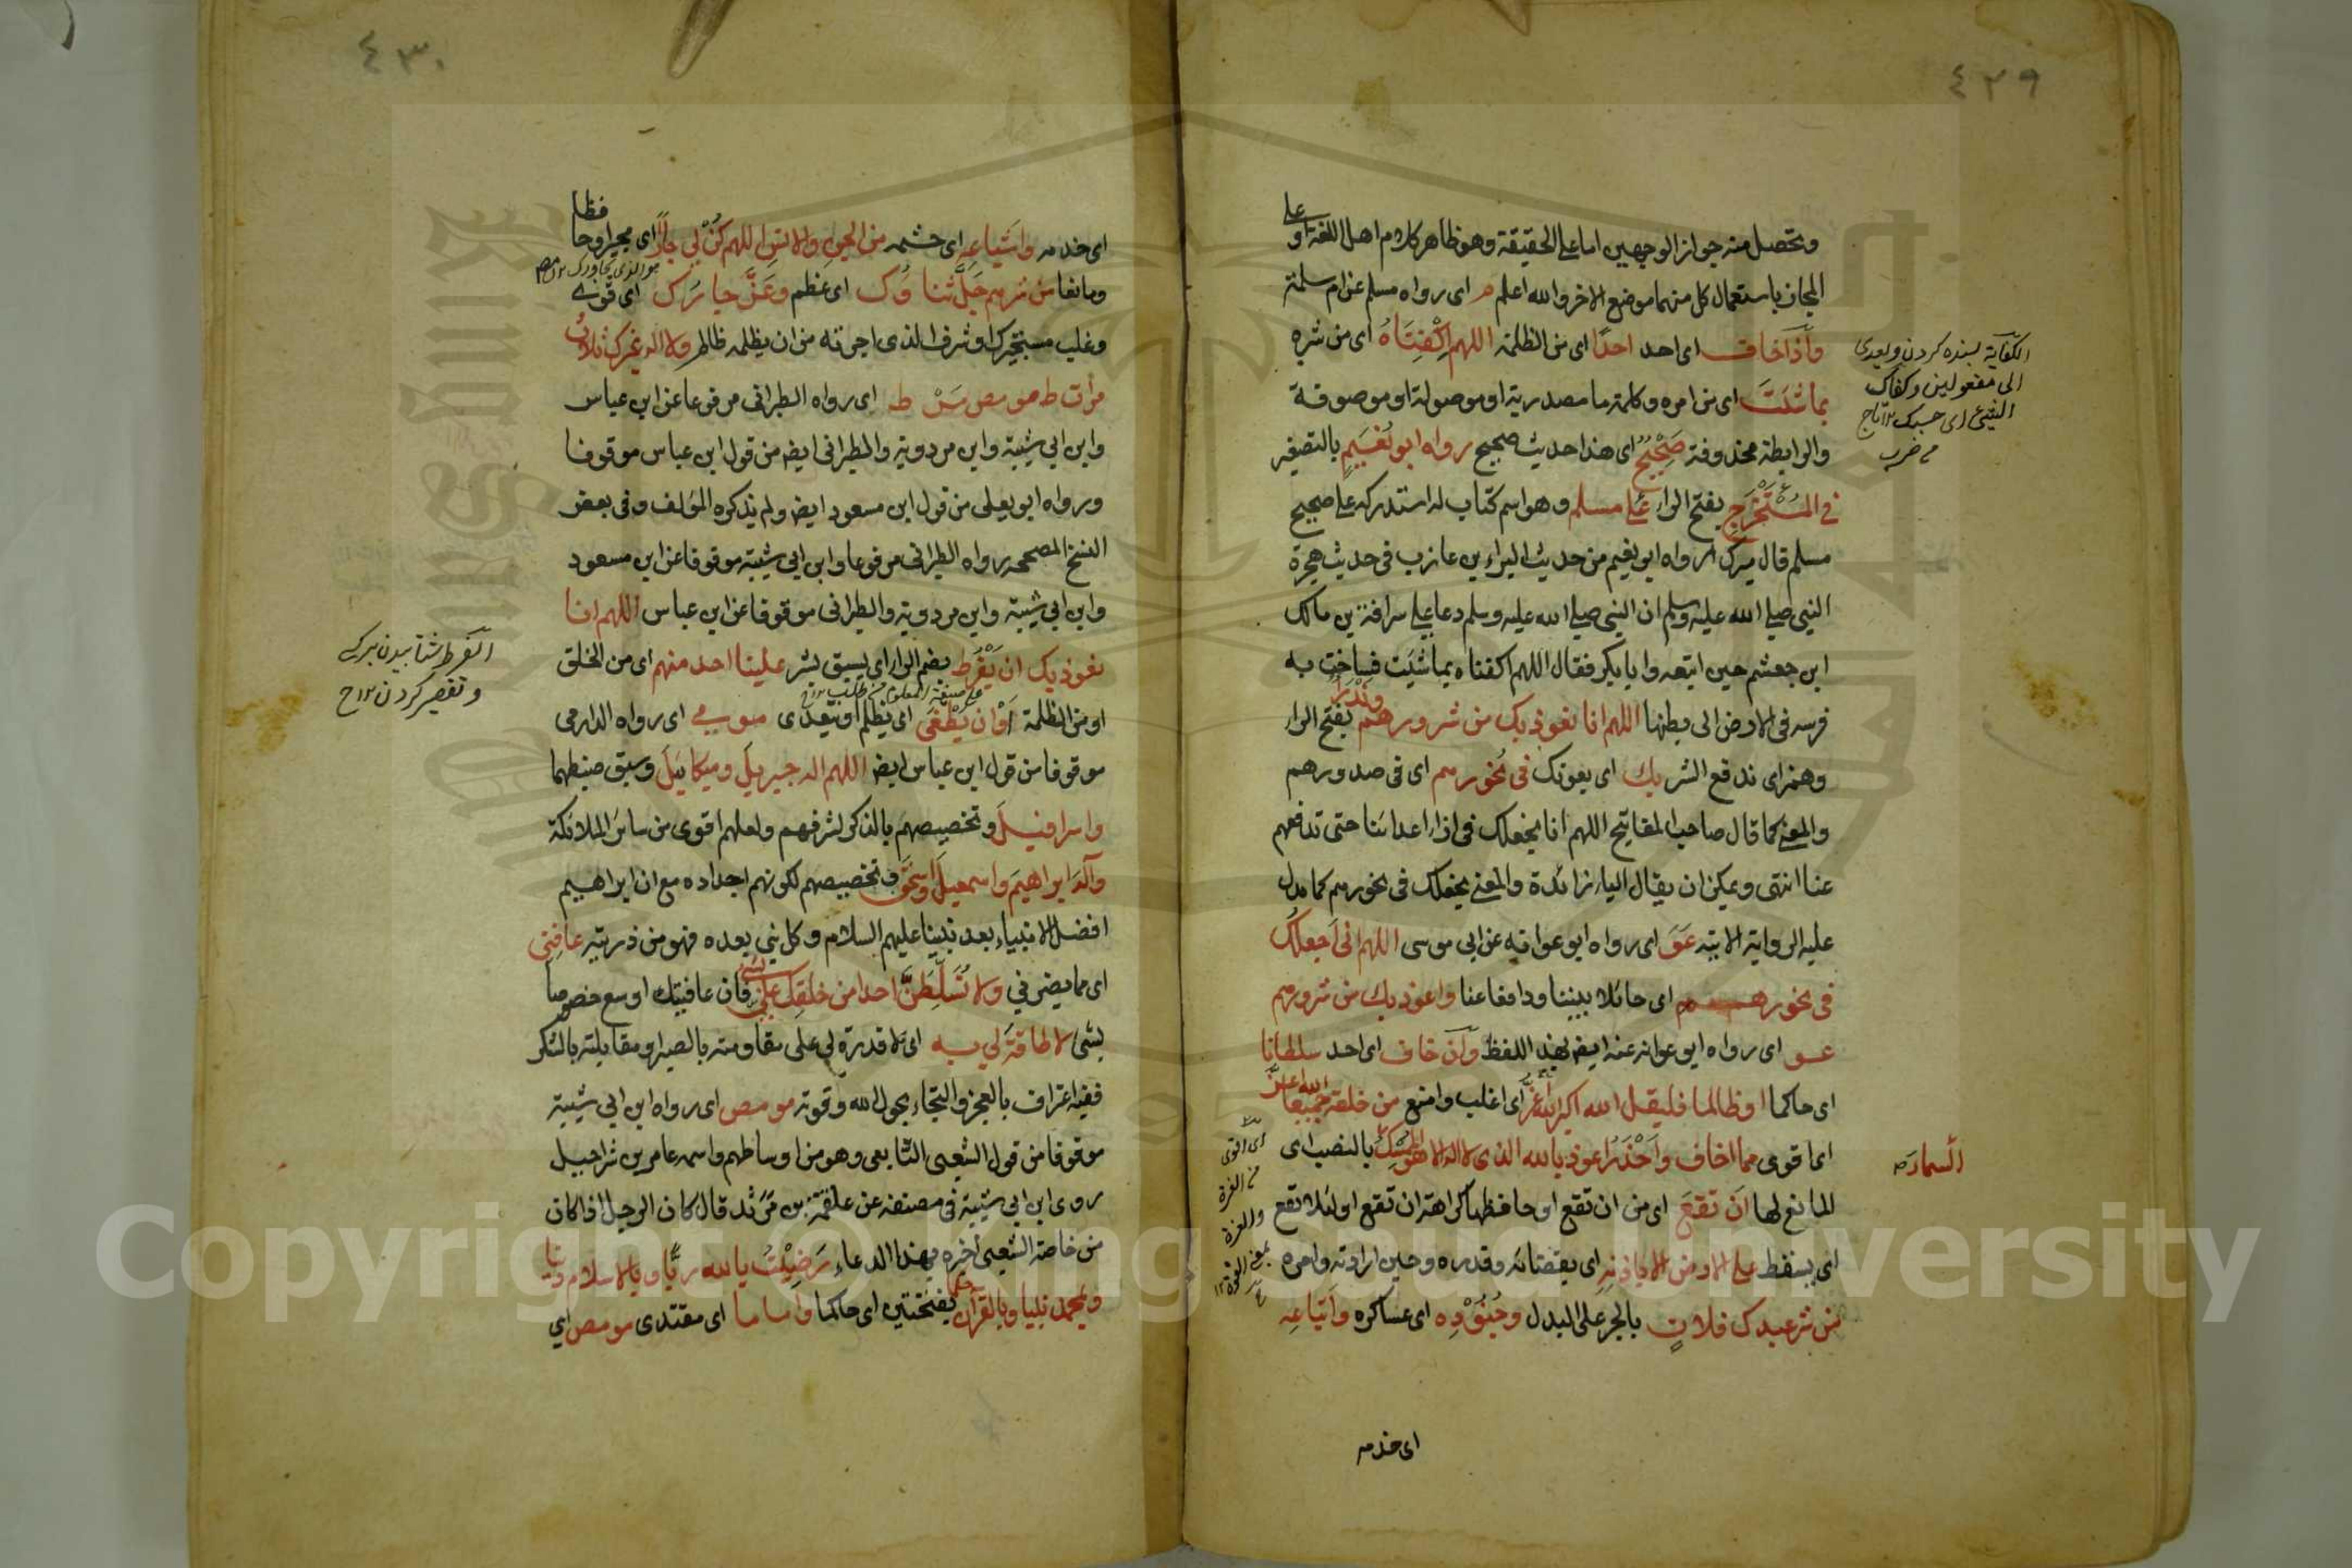 ٤٢٩
وتحصل منه جواز الوجهين اما على الحقيقة وهو ظاهر كلام اهل اللغة او على
المجاز باستعمال كل منهما موضع الاخر والله اعلم م اى رواه مسلم عن ام سلمة
واذا خاف اى احد احدا اى من الظلمة اللهم اكفناه اى من شره
بما شئت اى من امره وكلمة ما مصدرية او موصولة او موصوفة
والرابطة محذوفة صحيح اى هذا حديث صحيح رواه ابو نعيم بالتصغير
في المستخرج بفتح الراء على مسلم وهو اسم كتاب له استدركه على صحيح
مسلم قال ميرك رواه ابو نعيم من حديث البراء بن عازب فى حديث هجرة
النبي صلى الله عليه وسلم ان النبى صلى الله عليه وسلم دعا على سراقة بن مالك
ابن جعشم حين اتبعه وابا بكر فقال اللهم اكفناه بما شئت فساخت به
فرسه فى الارض الى بطنها اللهم انا نعوذ بك من شرورهم وندرأ بفتح الراء
وهمز اى ندفع الشر بك اى بعونك فى نحورهم اى فى صدورهم
والمعنى كما قال صاحب المفاتيح اللهم انا نجعلك فى ازاء اعدائنا حتى تدفعهم
عنا انتهى ويمكن ان يقال الباء زائدة والمعنى نجعلك فى نحورهم كما يدل
عليه الرواية الاتية عو اى رواه ابو عوانه عن ابى موسى اللهم انى اجعلك
فى نحورهم اى حائلا بيننا ودافعا عنا واعوذ بك من شرورهم
عو اى رواه ابو عوانه عنه ايضا بهذا اللفظ وان خاف اى احد سلطانا
اى حاكما او ظالما فليقل الله اكبر الله اعز اى اغلب وامنع من خلقه جميعا الله اعز
اى اقوى مما اخاف واحذر اعوذ بالله الذى لا اله الا هو الممسك بالنصب اى
المانع لها ان تقع اى من ان تقع او حافظها كراهة ان تقع او لئلا تقع
اى يسقط على الارض الا باذنه اى بقضائه وقدره وحين ارادته وامره
من شر عبدك فلان بالجر على البدل وجنوده اى عساكره واتباعه
اى خدمه
الكفاية بسنده كردن ويعدى
الى مفعولين وكفاك
الشئ اى حسبك ١٢ تاج
السماء صه
اى اقوى
من العزة
والعزة
بمعنى القوة ١٢
٤٣٠
اى خدمه واشياعه اى حشمه من الجن والانس اللهم كن لي جارا اى مجيرا وحافظا
ومانعا من شرهم جل ثناؤك اى عظم وعز جارك اى قوى
وغلب مستجيرك وشرف الذى اجرته من ان يظلمه ظالم ولا اله غيرك ثلاث
مرات ط مو مص مر ط اى رواه الطبرانى مرفوعا عن ابن عباس
وابن ابى شيبة وابن مردوية والطبرانى ايضا من قول ابن عباس موقوفا
ورواه ابو يعلى من قول ابن مسعود ايضا ولم يذكره المؤلف وفى بعض
النسخ المصححه رواه الطبرانى مرفوعا وابن ابى شيبة موقوفا عن ابن مسعود
وابن ابى شيبة وابن مردوية والطبرانى موقوفا عن ابن عباس اللهم انا
نعوذ بك ان يفرط بضم الراء اى يسبق بشر علينا احد منهم اى من الخلق
او من الظلمة او ان يطغى اى يظلم او يتعدى مو مي اى رواه الدارمى
موقوفا من قول ابن عباس ايضا اللهم اله جبريل وميكائيل وسبق ضبطهما
واسرافيل وتخصيصهم بالذكر لشرفهم ولعلهم اقوى من سائر الملائكة
واله ابراهيم واسمعيل واسحق وتخصيصهم لكونهم اجداده مع ان ابراهيم
افضل الانبياء بعد نبينا عليهم السلام وكل نبي بعده فهو من ذريته عافنى
اى مما يضرني ولا تسلطن احدا من خلقك علي بشئ فان عافيتك اوسع خصوصا
بشئ لا طاقة لي به اى لا قدرة لي على مقاومته بالصبر او مقابلته بالشكر
ففيه اعتراف بالعجز والتجاء بحول الله وقوته مو مص اى رواه ابن ابى شيبة
موقوفا من قول الشعبى التابعى وهو من اوساطهم واسمه عامر بن شراحبيل
روى ابن ابى شيبة فى مصنفه عن علقمة بن مرثد قال كان الرجل اذا كان
من خاصة الشعبى اخبره بهذا الدعاء رضيت بالله ربا وبالاسلام دينا
وبمحمد نبيا وبالقرآن حكما بفتحتين اى حاكما واماما اى مقتدى مو مص اي
الفرط شتابيدن بركسے
وتقصير كردن ١٢ ح
Copyright © King Saud University